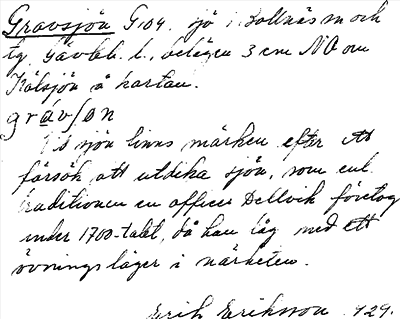 Gravsjön G:04. sjö i Bollnäs sn och
tg. Gävleb. l., belägen 3 cm NO om
Kölsjön å kartan.
gràv/ọn
Vid sjön finns märken efter ett
försök att utdika sjön, som enl.
traditionen en officer Dellvik företog
under 1700-talet, då han låg med ett
övningsläger i närheten.
Erik Eriksson 1929.